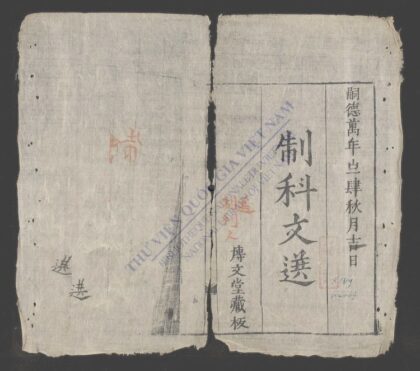 嗣德萬年㞢肆秋月吉日
制科文選
博文堂藏板
選
選
THƯ VIỆN QUỐC GIA VIỆT NAM
NATIONAL LIBRARY OF VIETNAM